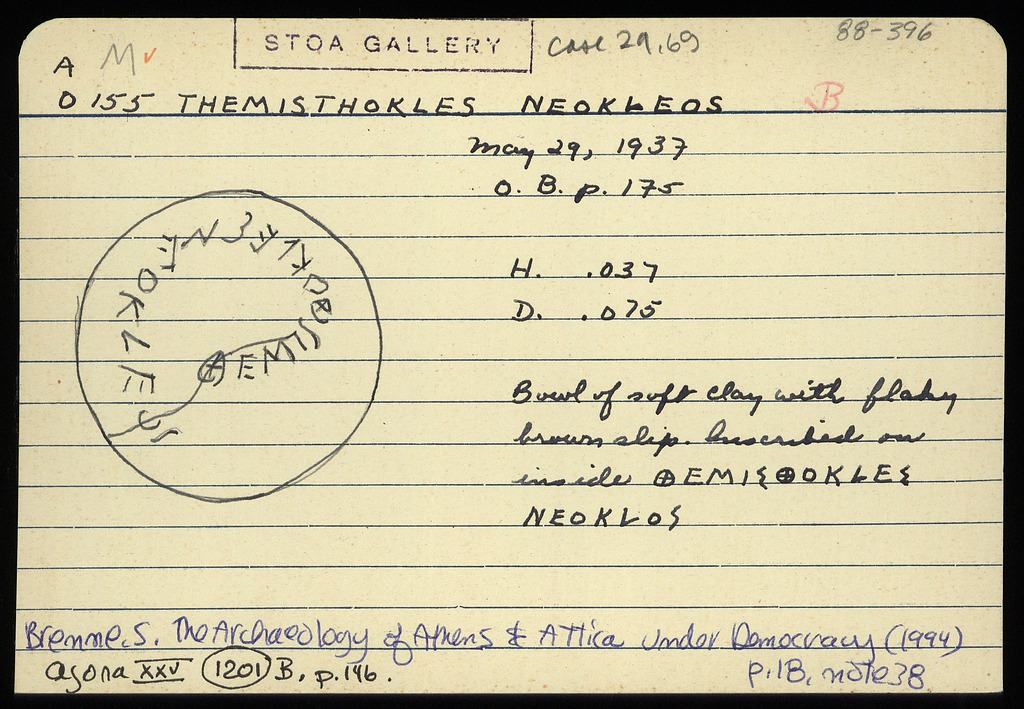 A M✓ STOA GALLERY Case 29,69 88-396
O 155 THEMISTHOKLES NEOKLEOS B
May 29, 1937
O. B. p. 175
H. .037
D. .075
Bowl of soft clay with flaky
brown slip. Inscribed on
inside ⊕EMIΣ⊕OKLEΣ
NEOKLOΣ
Brenne, S. The Archaeology of Athens & Attica under Democracy (1994)
Agora XXV 1201 B, p. 146. p. 18, note 38